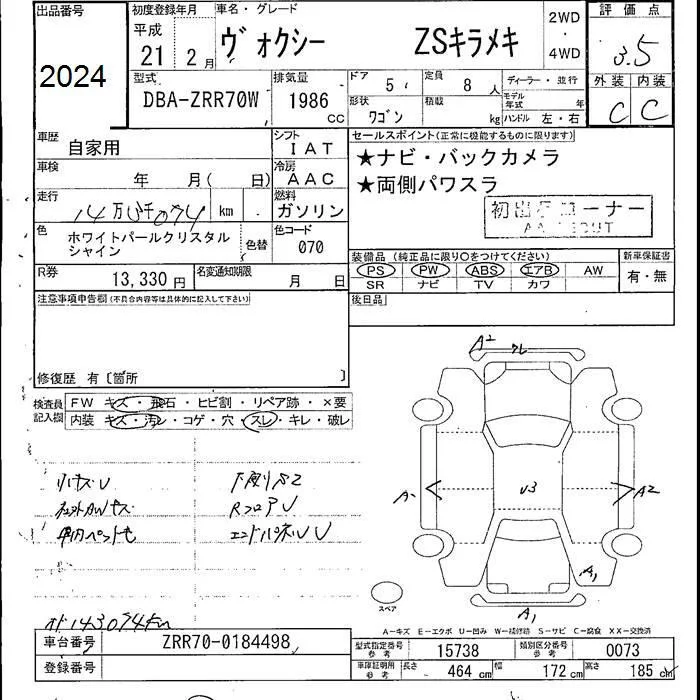 出品番号
2024
初度登録年月
平成
21年 2月
車名・グレード
ヴォクシー ZSキラメキ
2WD
・
4WD
評価点
3.5
型式
DBA-ZRR70W
排気量
1986
cc
ドア
5
定員
8人
ディーラー・並行
モデル年式 年
形状
ワゴン
積載
kg
ハンドル 左・右
外装 内装
C C
車歴
自家用
シフト
IAT
車検
年 月( 日)
冷房
AAC
走行
km
燃料
ガソリン
色
ホワイトパールクリスタル
シャイン
色替
色コード
070
R券
13,330円
名変通知期限
月 日
セールスポイント(正常に機能するものに限ります)
★ナビ・バックカメラ
★両側パワスラ
初出品コーナー
装備品(純正品に限り○をつけてください)
PS PW ABS エアB AW
SR ナビ TV カワ
新車保証書
有・無
後日品
注意事項申告欄(不具合内容等は具体的に記入して下さい)
修復歴 有〔箇所 〕
検査員
記入欄
FW キズ・飛石・ヒビ割・リペア跡・×要
内装 キズ・汚・コゲ・穴・スレ・キレ・破レ
小キズU
RフロアU
エンドパネルU
A2
ワレ
A
U3
A2
A1
A1
スペア
A-キズ E-エクボ U-凹み W-補修跡 S-サビ C-腐食 XX-交換済
車台番号
ZRR70-0184498
登録番号
型式指定番号
参考
15738
類別区分番号
参考
0073
車庫証明用
参考
長さ
464cm
幅
172cm
高さ
185cm